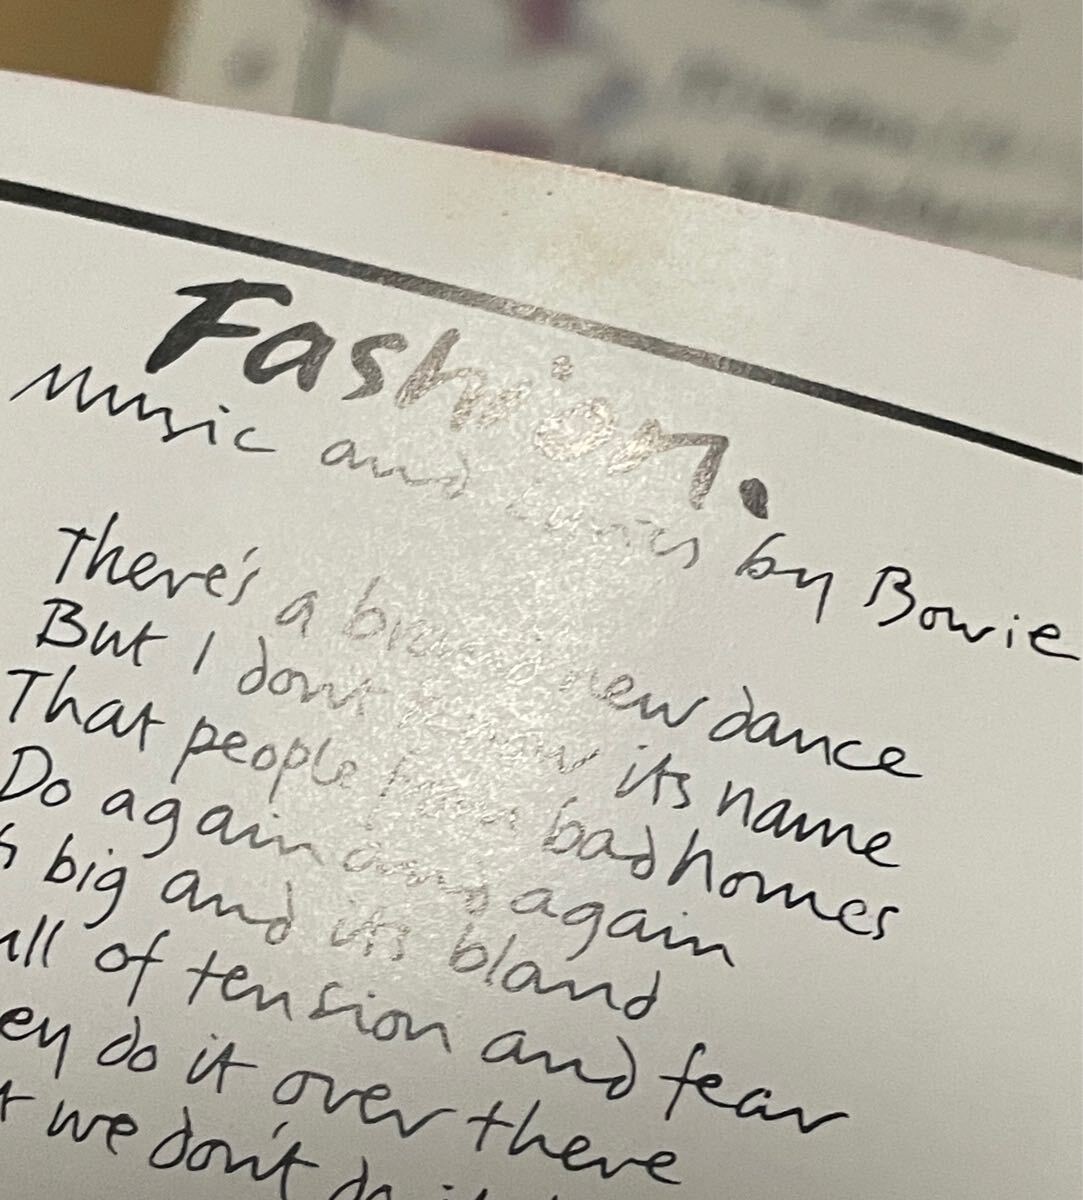 Fashion.
Music and Lyrics by Bowie
There's a brand new dance
But I dont know its name
That people from bad homes
Do again and again
big and its bland
of tension and fear
do it over there
we don't do it